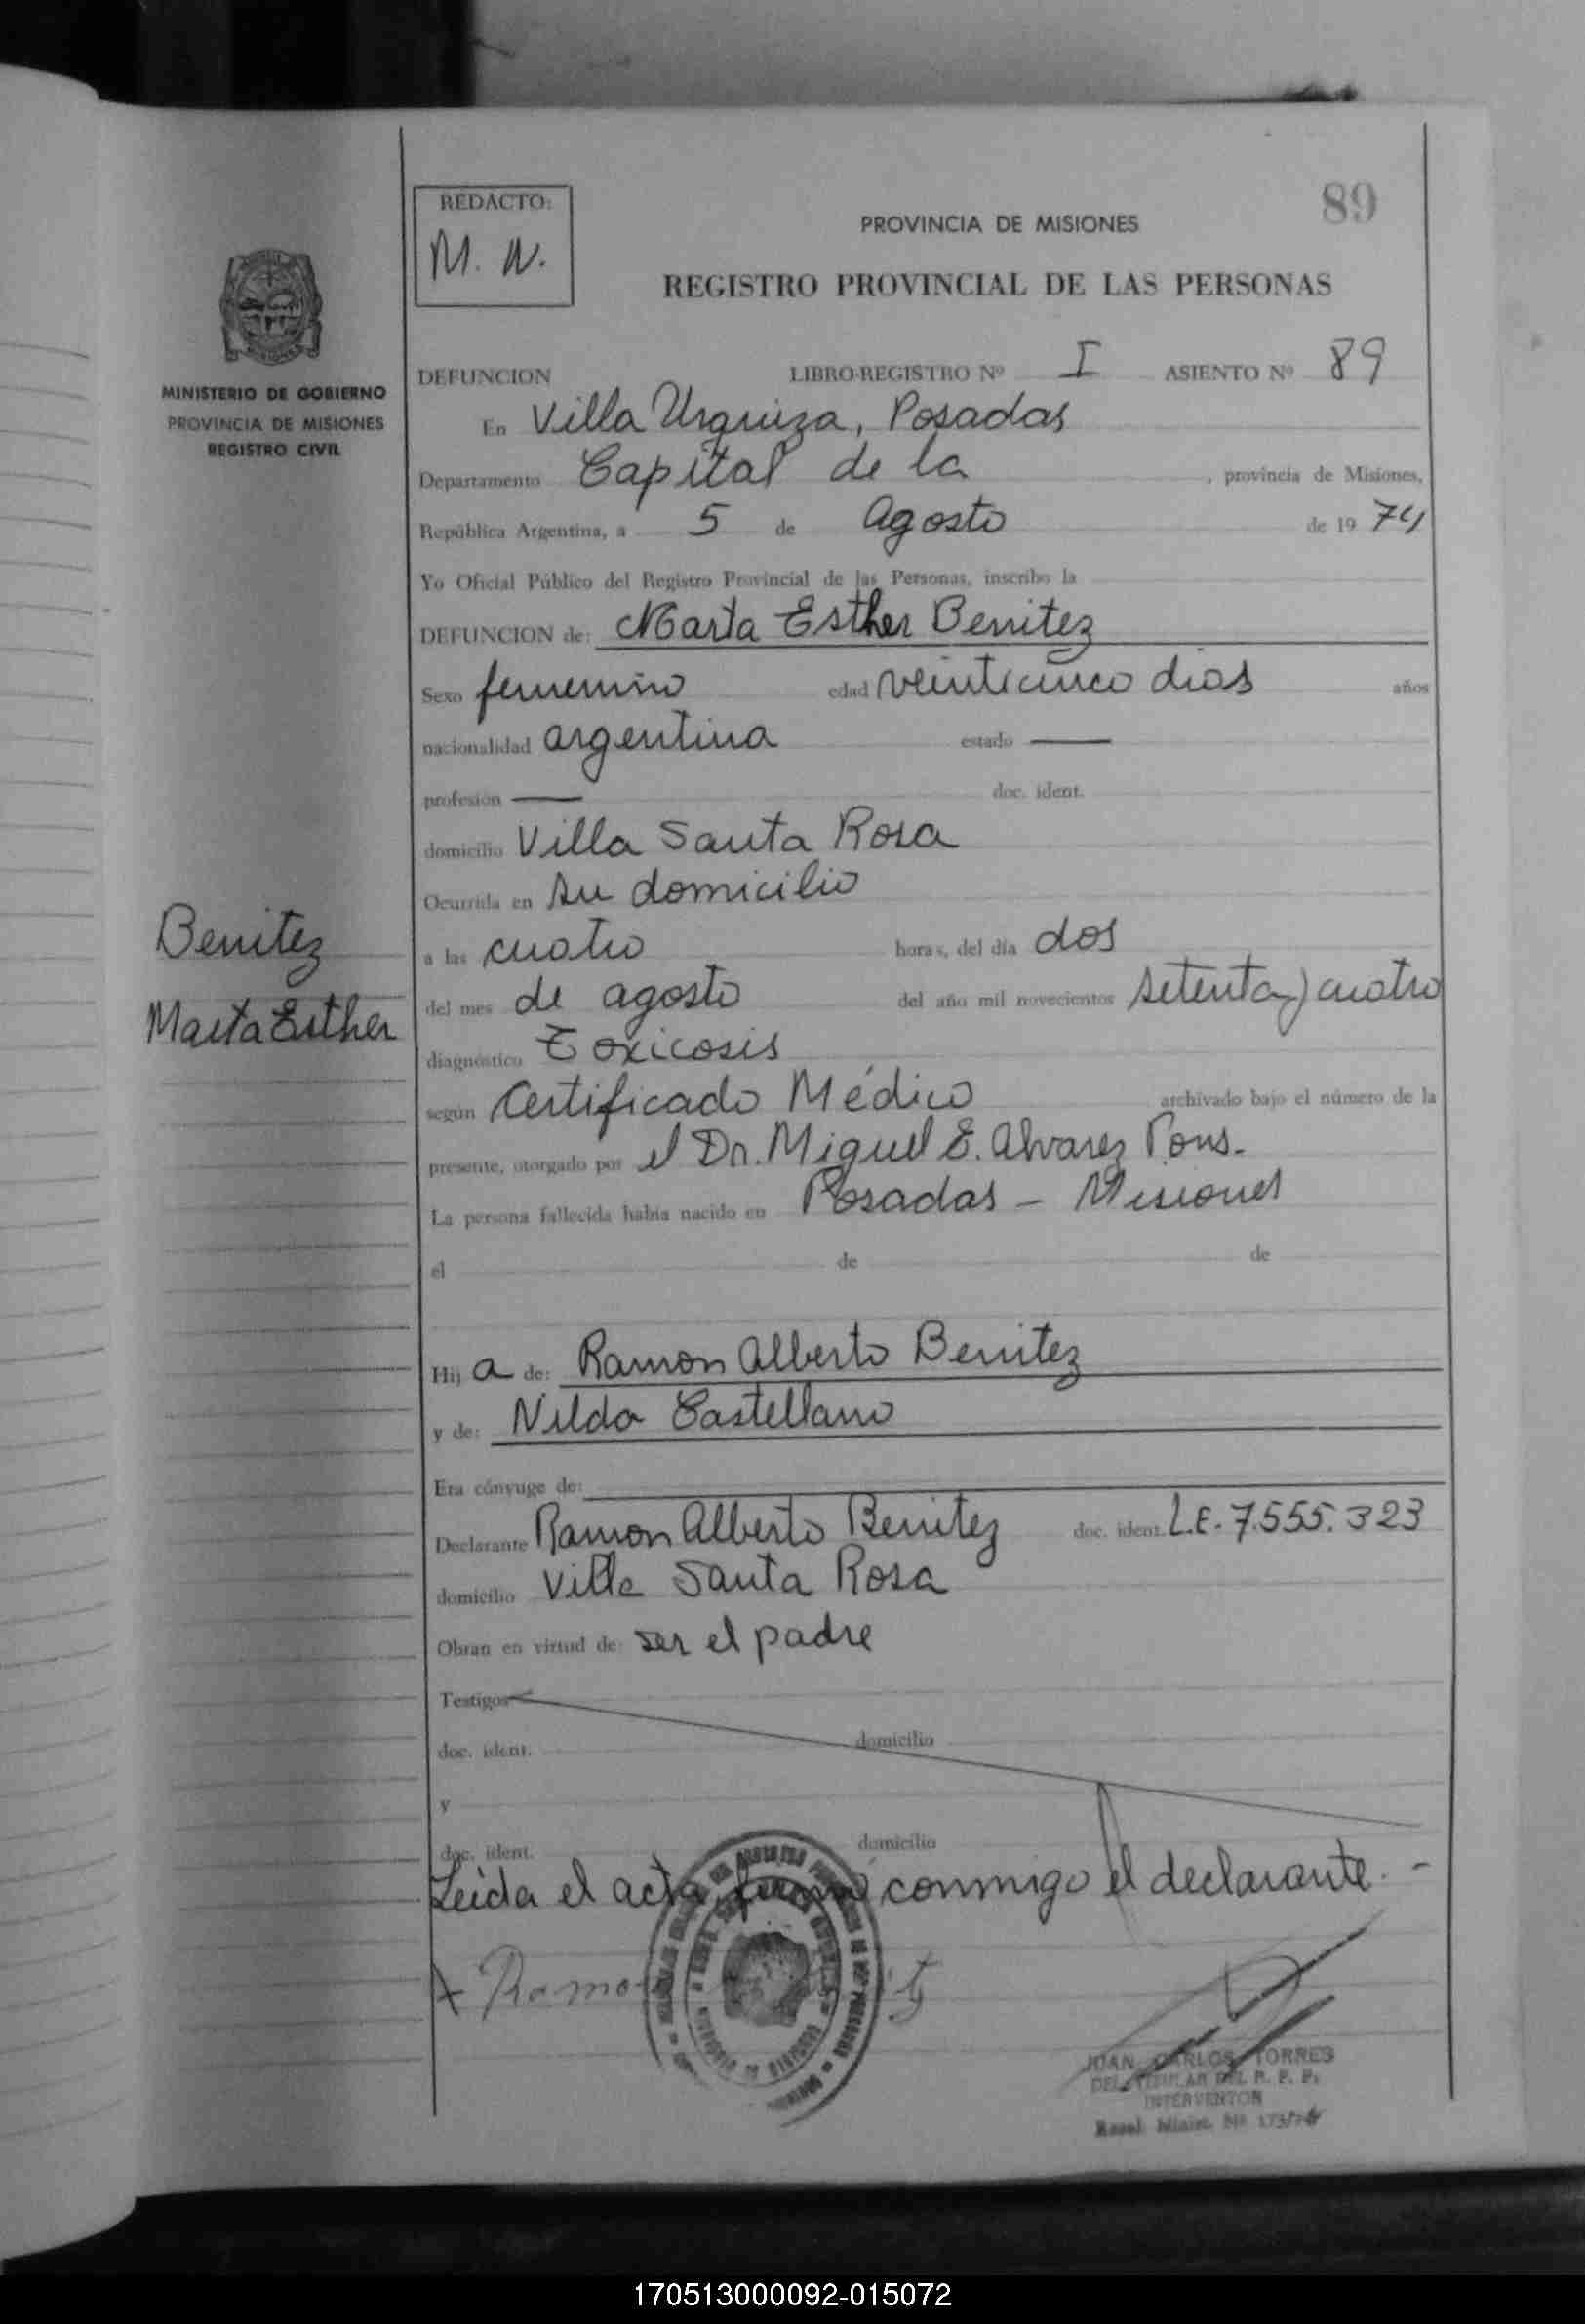 89
REDACTO:
M. N.
PROVINCIA DE MISIONES
REGISTRO PROVINCIAL DE LAS PERSONAS
MINISTERIO DE GOBIERNO
PROVINCIA DE MISIONES
REGISTRO CIVIL
DEFUNCION LIBRO-REGISTRO Nº I ASIENTO Nº 89
En Villa Urquiza, Posadas
Departamento Capital de la , provincia de Misiones,
República Argentina, a 5 de Agosto de 19 74
Yo Oficial Público del Registro Provincial de las Personas, inscribo la
DEFUNCION de: Marta Esther Benitez
Sexo femenino edad veinticinco dias años
nacionalidad argentina estado —
profesión — doc. ident.
domicilio Villa Santa Rosa
Ocurrida en su domicilio
Benitez
Marta Esther
a las cuatro horas, del día dos
del mes de agosto del año mil novecientos setenta y cuatro
diagnóstico Toxicosis
según Certificado Médico archivado bajo el número de la
presente, otorgado por el Dr. Miguel E. Alvarez Pons.
La persona fallecida había nacido en Posadas - Misiones
el de de
Hij a de: Ramon Alberto Benitez
y de: Nilda Castellano
Era cónyuge de:
Declarante Ramon Alberto Benitez doc. ident. L.E. 7.555.323
domicilio Villa Santa Rosa
Obran en virtud de: ser el padre
Testigos
doc. ident. domicilio
y
doc. ident. domicilio
Leida el acta, firma conmigo el declarante. -
JUAN CARLOS TORRES
DEL. TITULAR DEL R. P. P.
INTERVENTOR
Resol. Minist. Nº 173/74
170513000092-015072